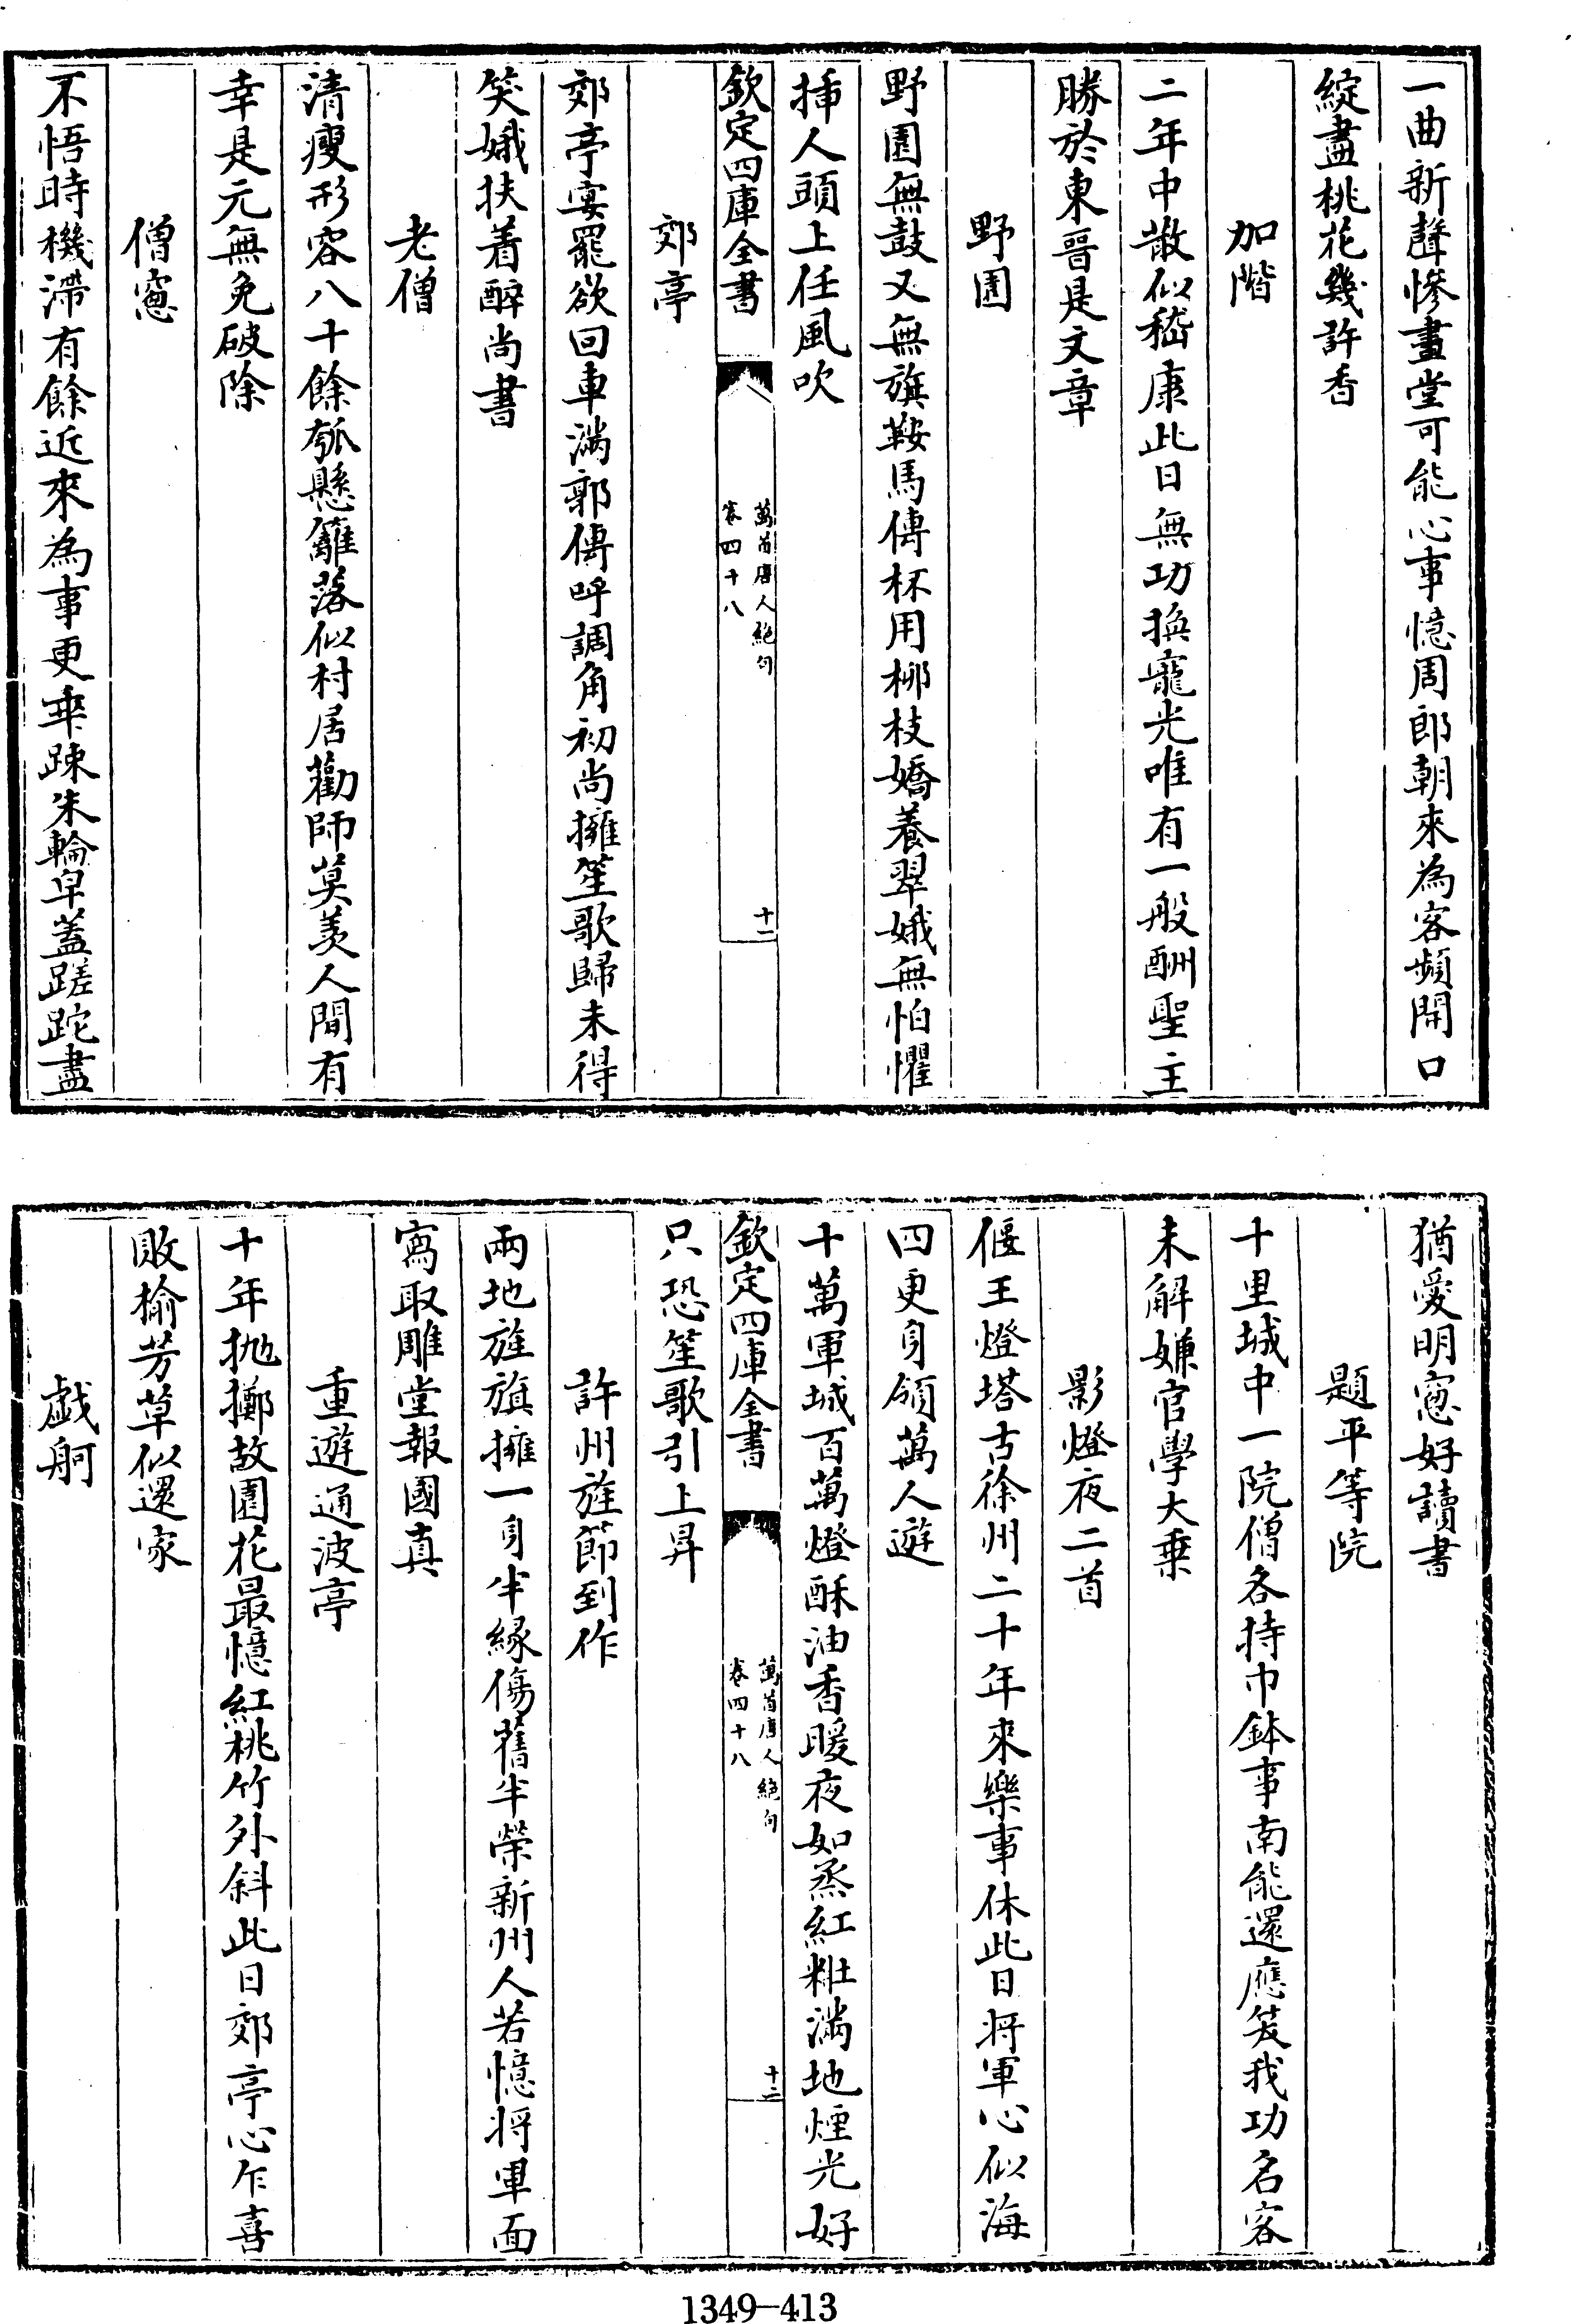 一曲新聲慘畫堂可能心事憶周郎朝來為客頻開口
綻盡桃花幾許香
加階
二年中散似嵇康此日無功換寵光唯有一般酬聖主
勝於東晉是文章
野園
野園無鼓又無旗鞍馬傳杯用柳枝嬌養翠娥無怕懼
插人頭上任風吹
欽定四庫全書
萬首唐人絶句
卷四十八
十一
郊亭
郊亭宴罷欲回車滿郭傳呼調角初尚擁笙歌歸未得
笑娥扶着醉尚書
老僧
清瘦形容八十餘瓠懸籬落似村居勸師莫羨人間有
幸是元無免破除
僧窻
不悟時機滯有餘近來為事更乗踈朱輪皁蓋蹉跎盡
猶愛明窻好讀書
題平等院
十里城中一院僧各持巾鉢事南能還應笑我功名客
未解嫌官學大乗
影燈夜二首
偃王燈塔古徐州二十年來樂事休此日將軍心似海
四更身領萬人遊
十萬軍城百萬燈酥油香暖夜如烝紅粧滿地煙光好
只恐笙歌引上昇
欽定四庫全書
萬首唐人絶句
卷四十八
十二
許州旌節到作
兩地旌旗擁一身半緣傷舊半榮新州人若憶將軍面
寫取雕堂報國真
重遊通波亭
十年抛擲故園花最憶紅桃竹外斜此日郊亭心乍喜
敗榆芳草似還家
戱舸
1349-413